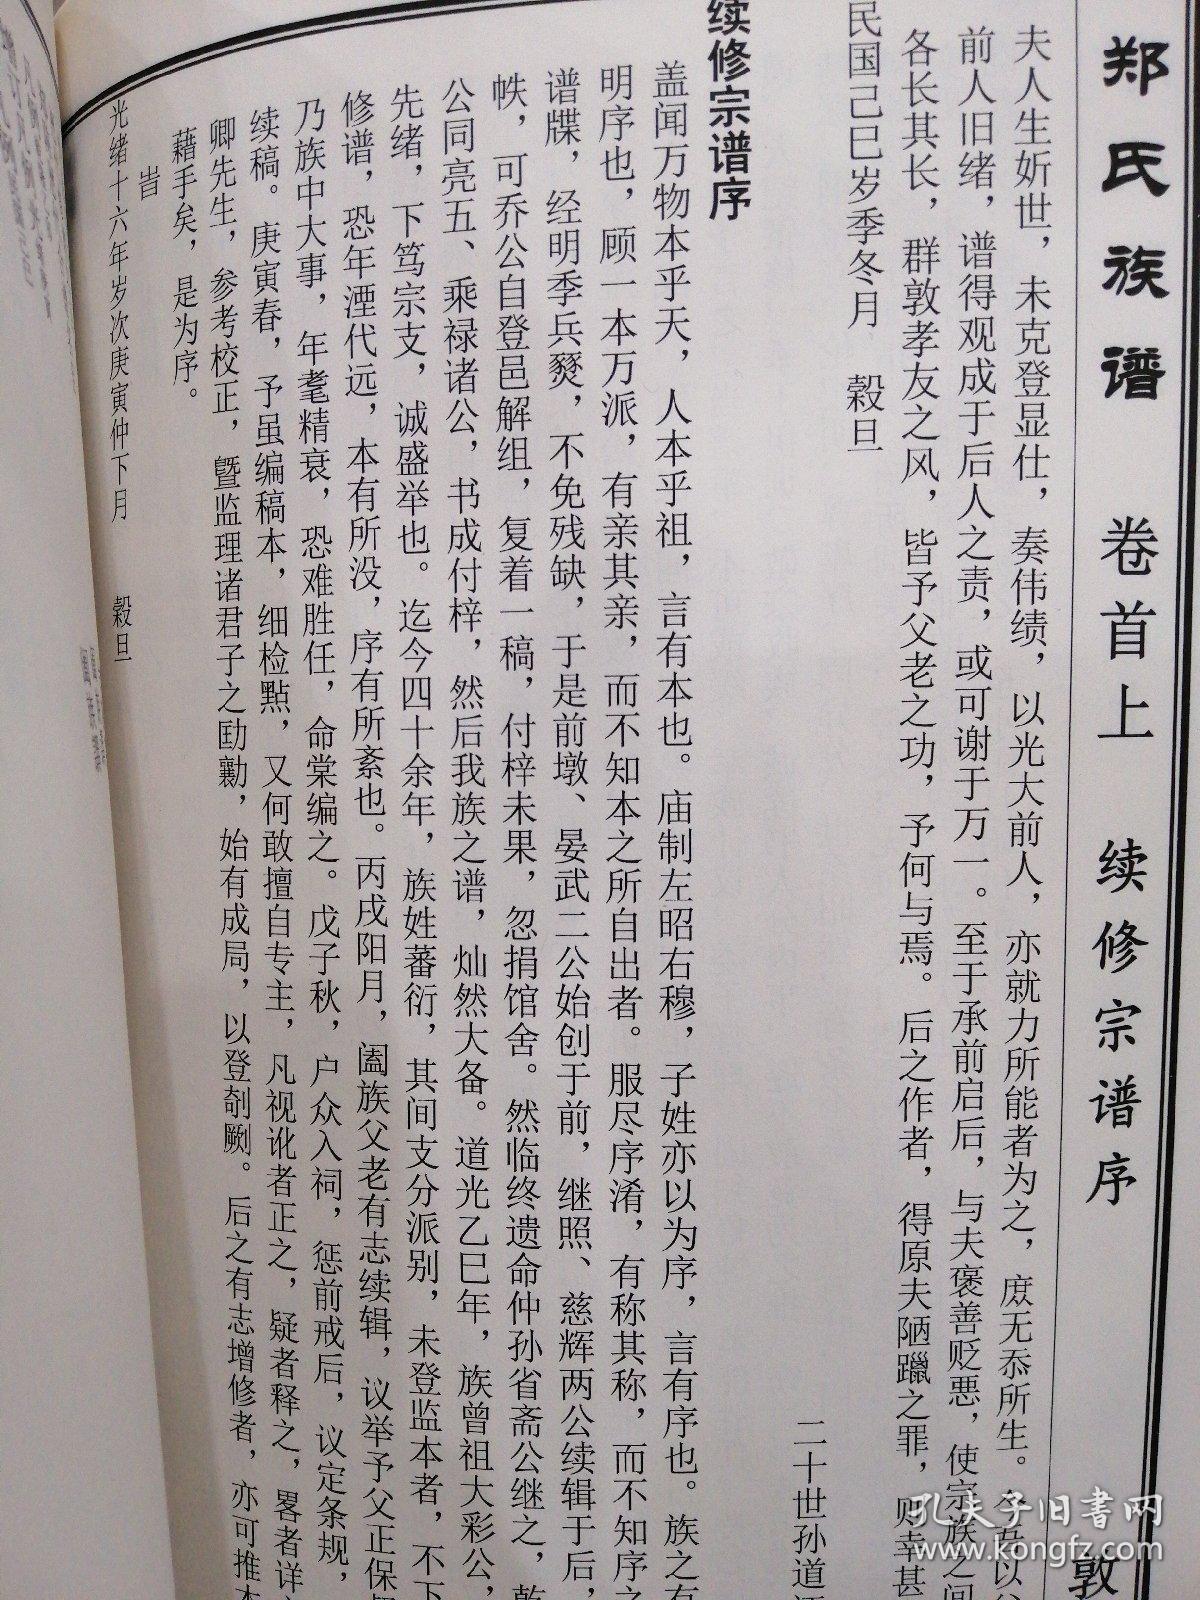 郑氏族谱 卷首上 续修宗谱序 敦
夫人生斨世，未克登显仕，奏伟绩，以光大前人，亦就力所能者为之，庶无忝所生。今吾以
前人旧绪，谱得观成于后人之责，或可谢于万一。至于承前启后，与夫褒善贬恶，使宗族之间
各长其长，群敦孝友之风，皆予父老之功，予何与焉。后之作者，得原夫陋躐之罪，则幸甚
民国己巳岁季冬月 榖旦
二十世孙道
续修宗谱序
盖闻万物本乎天，人本乎祖，言有本也。庙制左昭右穆，子姓亦以为序，言有序也。族之有
明序也，顾一本万派，有亲其亲，而不知本之所自出者。服尽序淆，有称其称，而不知序之
谱牒，经明季兵燹，不免残缺，于是前墩、晏武二公始创于前，继照、慈辉两公续辑于后，
帙，可乔公自登邑解组，复着一稿，付梓未果，忽捐馆舍。然临终遗命仲孙省斋公继之，乾
公同亮五、乘禄诸公，书成付梓，然后我族之谱，灿然大备。道光乙巳年，族曾祖大彩公，
先绪，下笃宗支，诚盛举也。迄今四十余年，族姓蕃衍，其间支分派别，未登监本者，不下
修谱，恐年湮代远，本有所没，序有所紊也。丙戌阳月，阖族父老有志续辑，议举予父正保
乃族中大事，年耄精衰，恐难胜任，命棠编之。戊子秋，户众入祠，惩前戒后，议定条规，
续稿。庚寅春，予虽编稿本，细检點，又何敢擅自专主，凡视讹者正之，疑者释之，畧者详
卿先生，参考校正，暨监理诸君子之劻勷，始有成局，以登剞劂。后之有志增修者，亦可推本
藉手矣，是为序。
旹
光绪十六年岁次庚寅仲下月 榖旦
孔夫子旧书网
www.kongfz.com